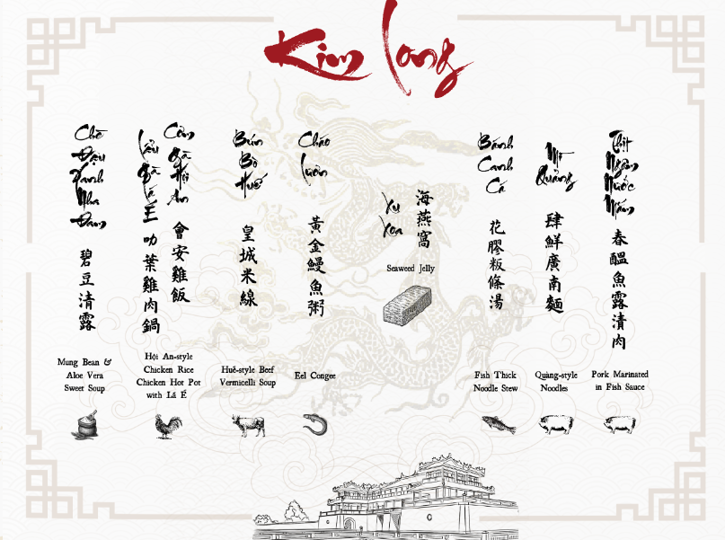 Kim Long
Chè
Đậu
Xanh
Nha
Đam
碧豆清露
Mung Bean &
Aloe Vera
Sweet Soup
Lẩu
Gà
Lá
É
叻葉雞肉鍋
Cơm
Gà
Hội
An
會安雞飯
Hội An-style
Chicken Rice
Chicken Hot Pot
with Lá É
Bún
Bò
Huế
皇城米線
Huế-style Beef
Vermicelli Soup
Cháo
Lươn
黃金鰻魚粥
Eel Congee
Xu
Xoa
海燕窩
Seaweed Jelly
Bánh
Canh
Cá
花膠粄條湯
Fish Thick
Noodle Stew
Mì
Quảng
肆鮮廣南麵
Quảng-style
Noodles
Thịt
Ngâm
Nước
Mắm
春醞魚露漬肉
Pork Marinated
in Fish Sauce